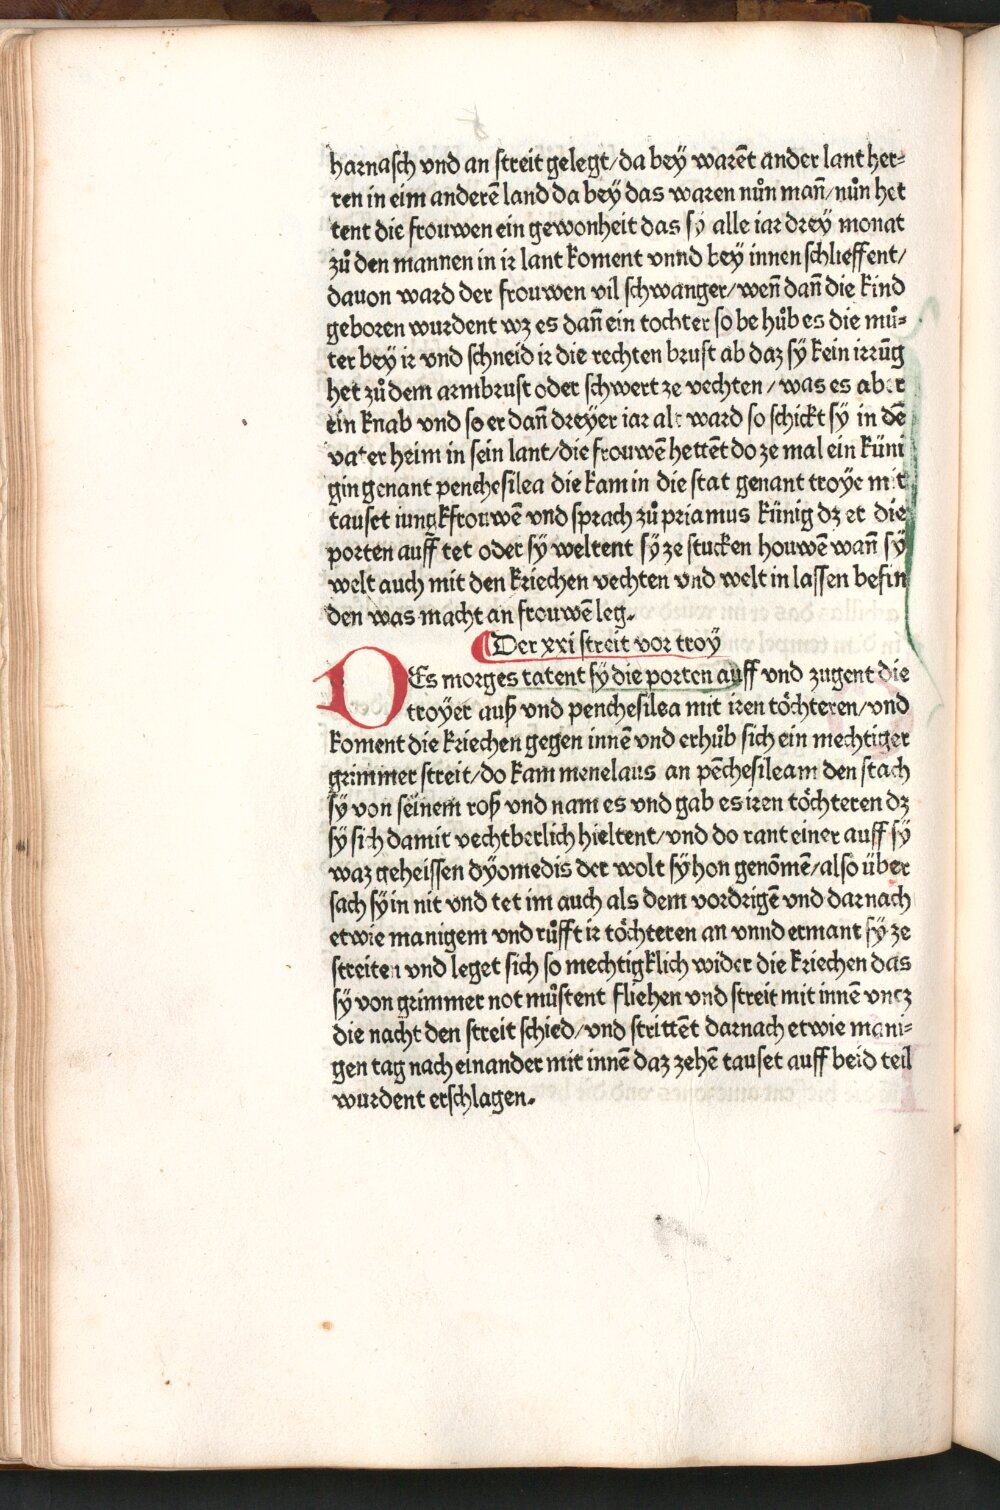 harnasch vnd an streit gelegt/da bey warēt ander lant her⸗
ren in eim anderē land da bey das waren nůn man̄/nůn het
tent die frouwen ein gewonheit das sy alle iar drey monat
zů den mannen in ir lant koment vnnd bey innen schlieffent/
dauon ward der frouwen vil schwanger/wen̄ dan̄ die kind
geboren wurdent wz es dan̄ ein tochter so be hůb es die můr⸗
ter bey ir vnd schneid ir die rechten brust ab daz sÿ kein irrūg
het zů dem armbrust oder schwert ze vechten/was es aber
ein knab vnd so er dan̄ dreyer iar alt ward so schickt sÿ in dē
vater heim in sein lant/die frouwē hettēt do ze mal ein küni
gin genant penchesilea die kam in die stat genant troye mit
tauset iungkfrouwē vnd sprach zů priamus künig dz et die
porten auff tet oder sÿ weltent sÿ ze stucken houwē wan̄ sÿ
welt auch mit den kriechen vechten vnd welt in lassen befin
den was macht an frouwē leg.
Der xxi streit vor troÿ
DEs morges tatent sÿ die porten auff vnd zugent die
troyer auß vnd penchesilea mit iren töchteren/vnd
koment die kriechen gegen innē vnd erhůb sich ein mechtiger
grimmer streit/do kam menelaus an pēchesileam den stach
sÿ von seinem roß vnd nam es vnd gab es iren töchteren dz
sÿ sich damit vechtberlich hieltent/vnd do rant einer auff sÿ
waz geheissen dÿomedis der wolt sÿ hon genōmē/also über
sach sÿ in nit vnd tet im auch als dem vordrigē vnd darnach
etwie manigem vnd růfft ir töchteren an vnnd ermant sÿ ze
streiten vnd leget sich so mechtigklich wider die kriechen das
sÿ von grimmer not můstent fliehen vnd streit mit innē vncz
die nacht den streit schied/vnd strittēt darnach etwie mani⸗
gen tag nach einander mit innē daz zehē tauset auff beid teil
wurdent erschlagen.